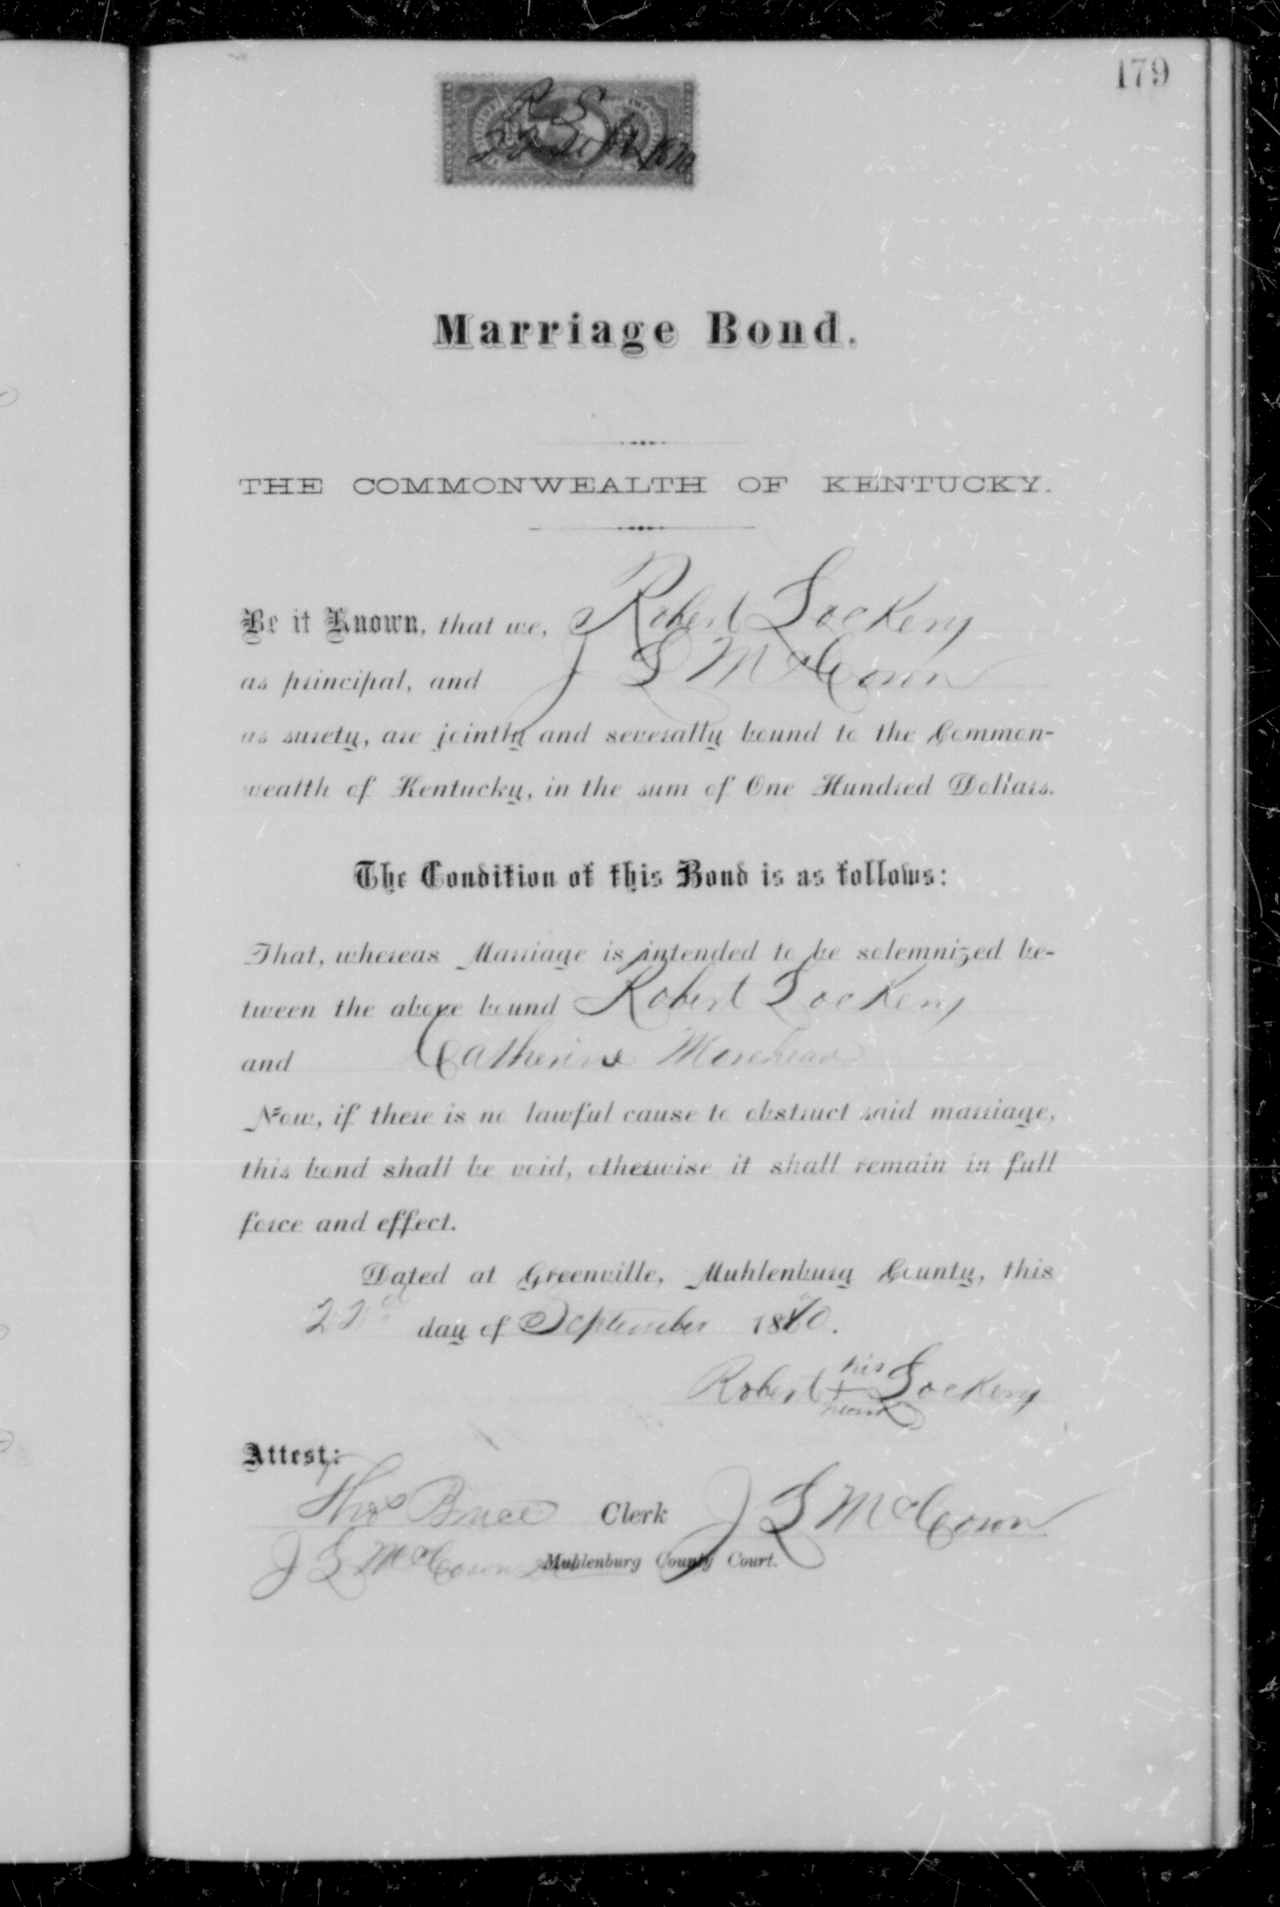 179
22 Sept 1870
Marriage Bond.
THE COMMONWEALTH OF KENTUCKY.
Be it Known, that we, Robert Lockery
as principal, and J L McCown
as surety, are jointly and severally bound to the Common-
wealth of Kentucky, in the sum of One Hundred Dollars.
The Condition of this Bond is as follows:
That, whereas Marriage is intended to be solemnized be-
tween the above bound Robert Lockery
and Catherine Morehead
Now, if there is no lawful cause to obstruct said marriage,
this bond shall be void, otherwise it shall remain in full
force and effect.
Dated at Greenville, Muhlenburg County, this
22d day of September 1870.
Robert his + mark Lockery
Attest:
Thos Bruce Clerk J L McCown
J L McCown Muhlenburg County Court.